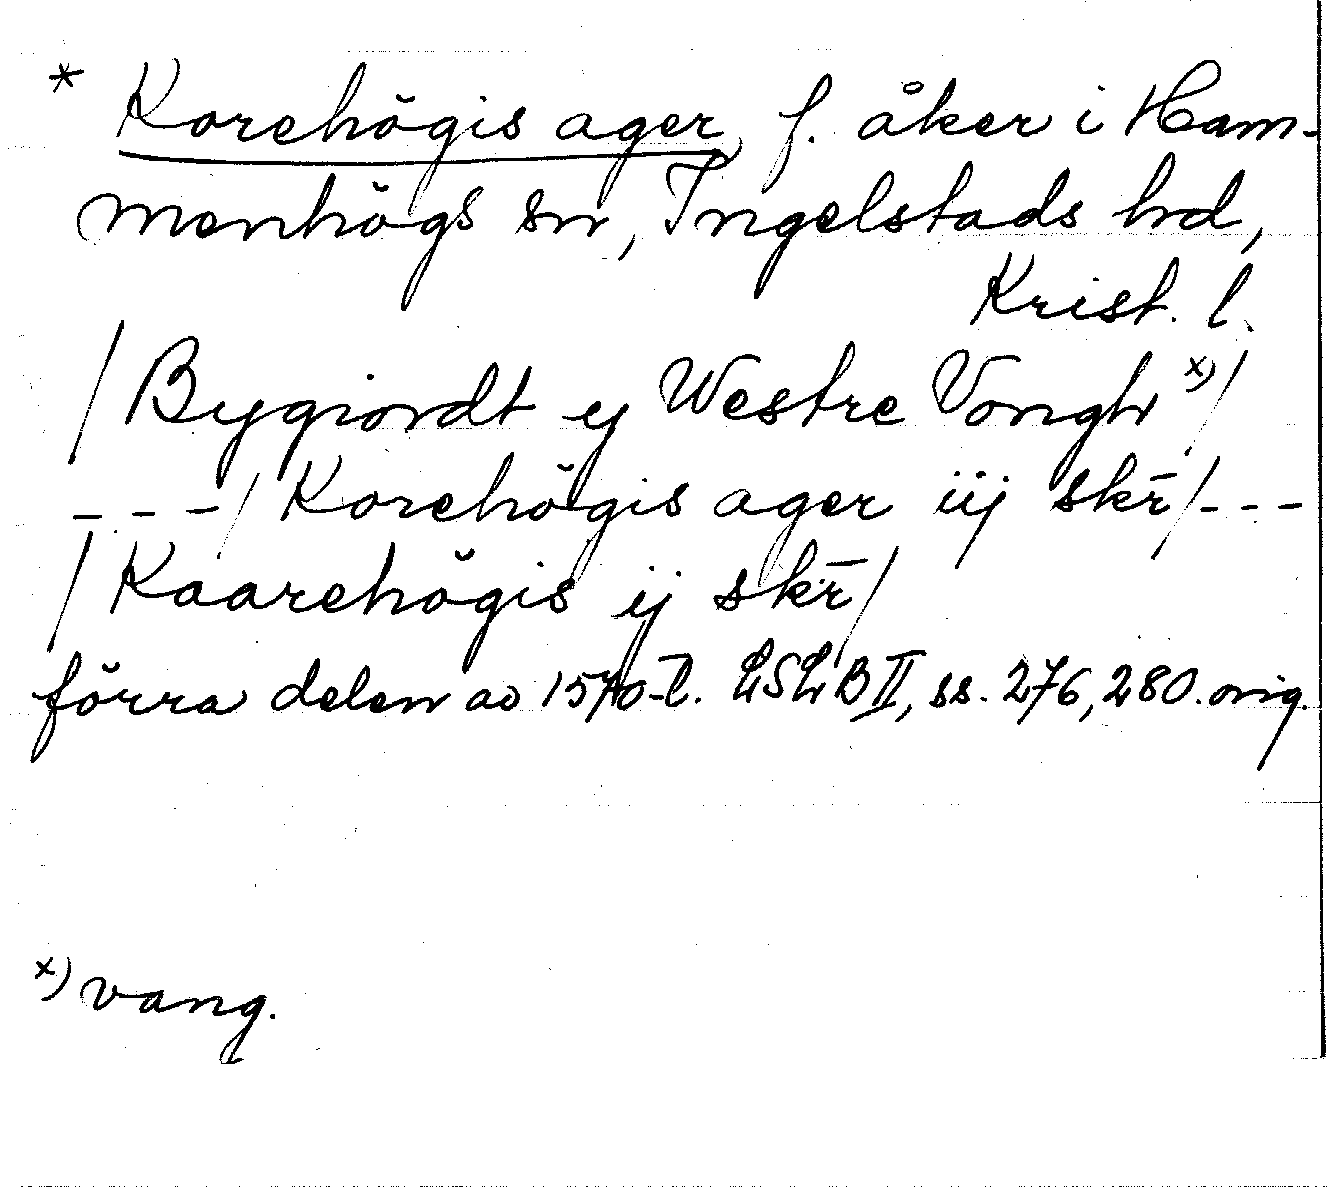 * Korehögis ager, f. åker i Ham-
menhögs sn, Ingelstads hd,
Krist. l.
/Bygiordt ij Westre Vongh x)/
---/Korehögis ager iij skr̄/---
/Kaarehögis ij skr̄/
förra delen av 1570-t. LSLB II, ss. 276, 280. orig.
x) vang.